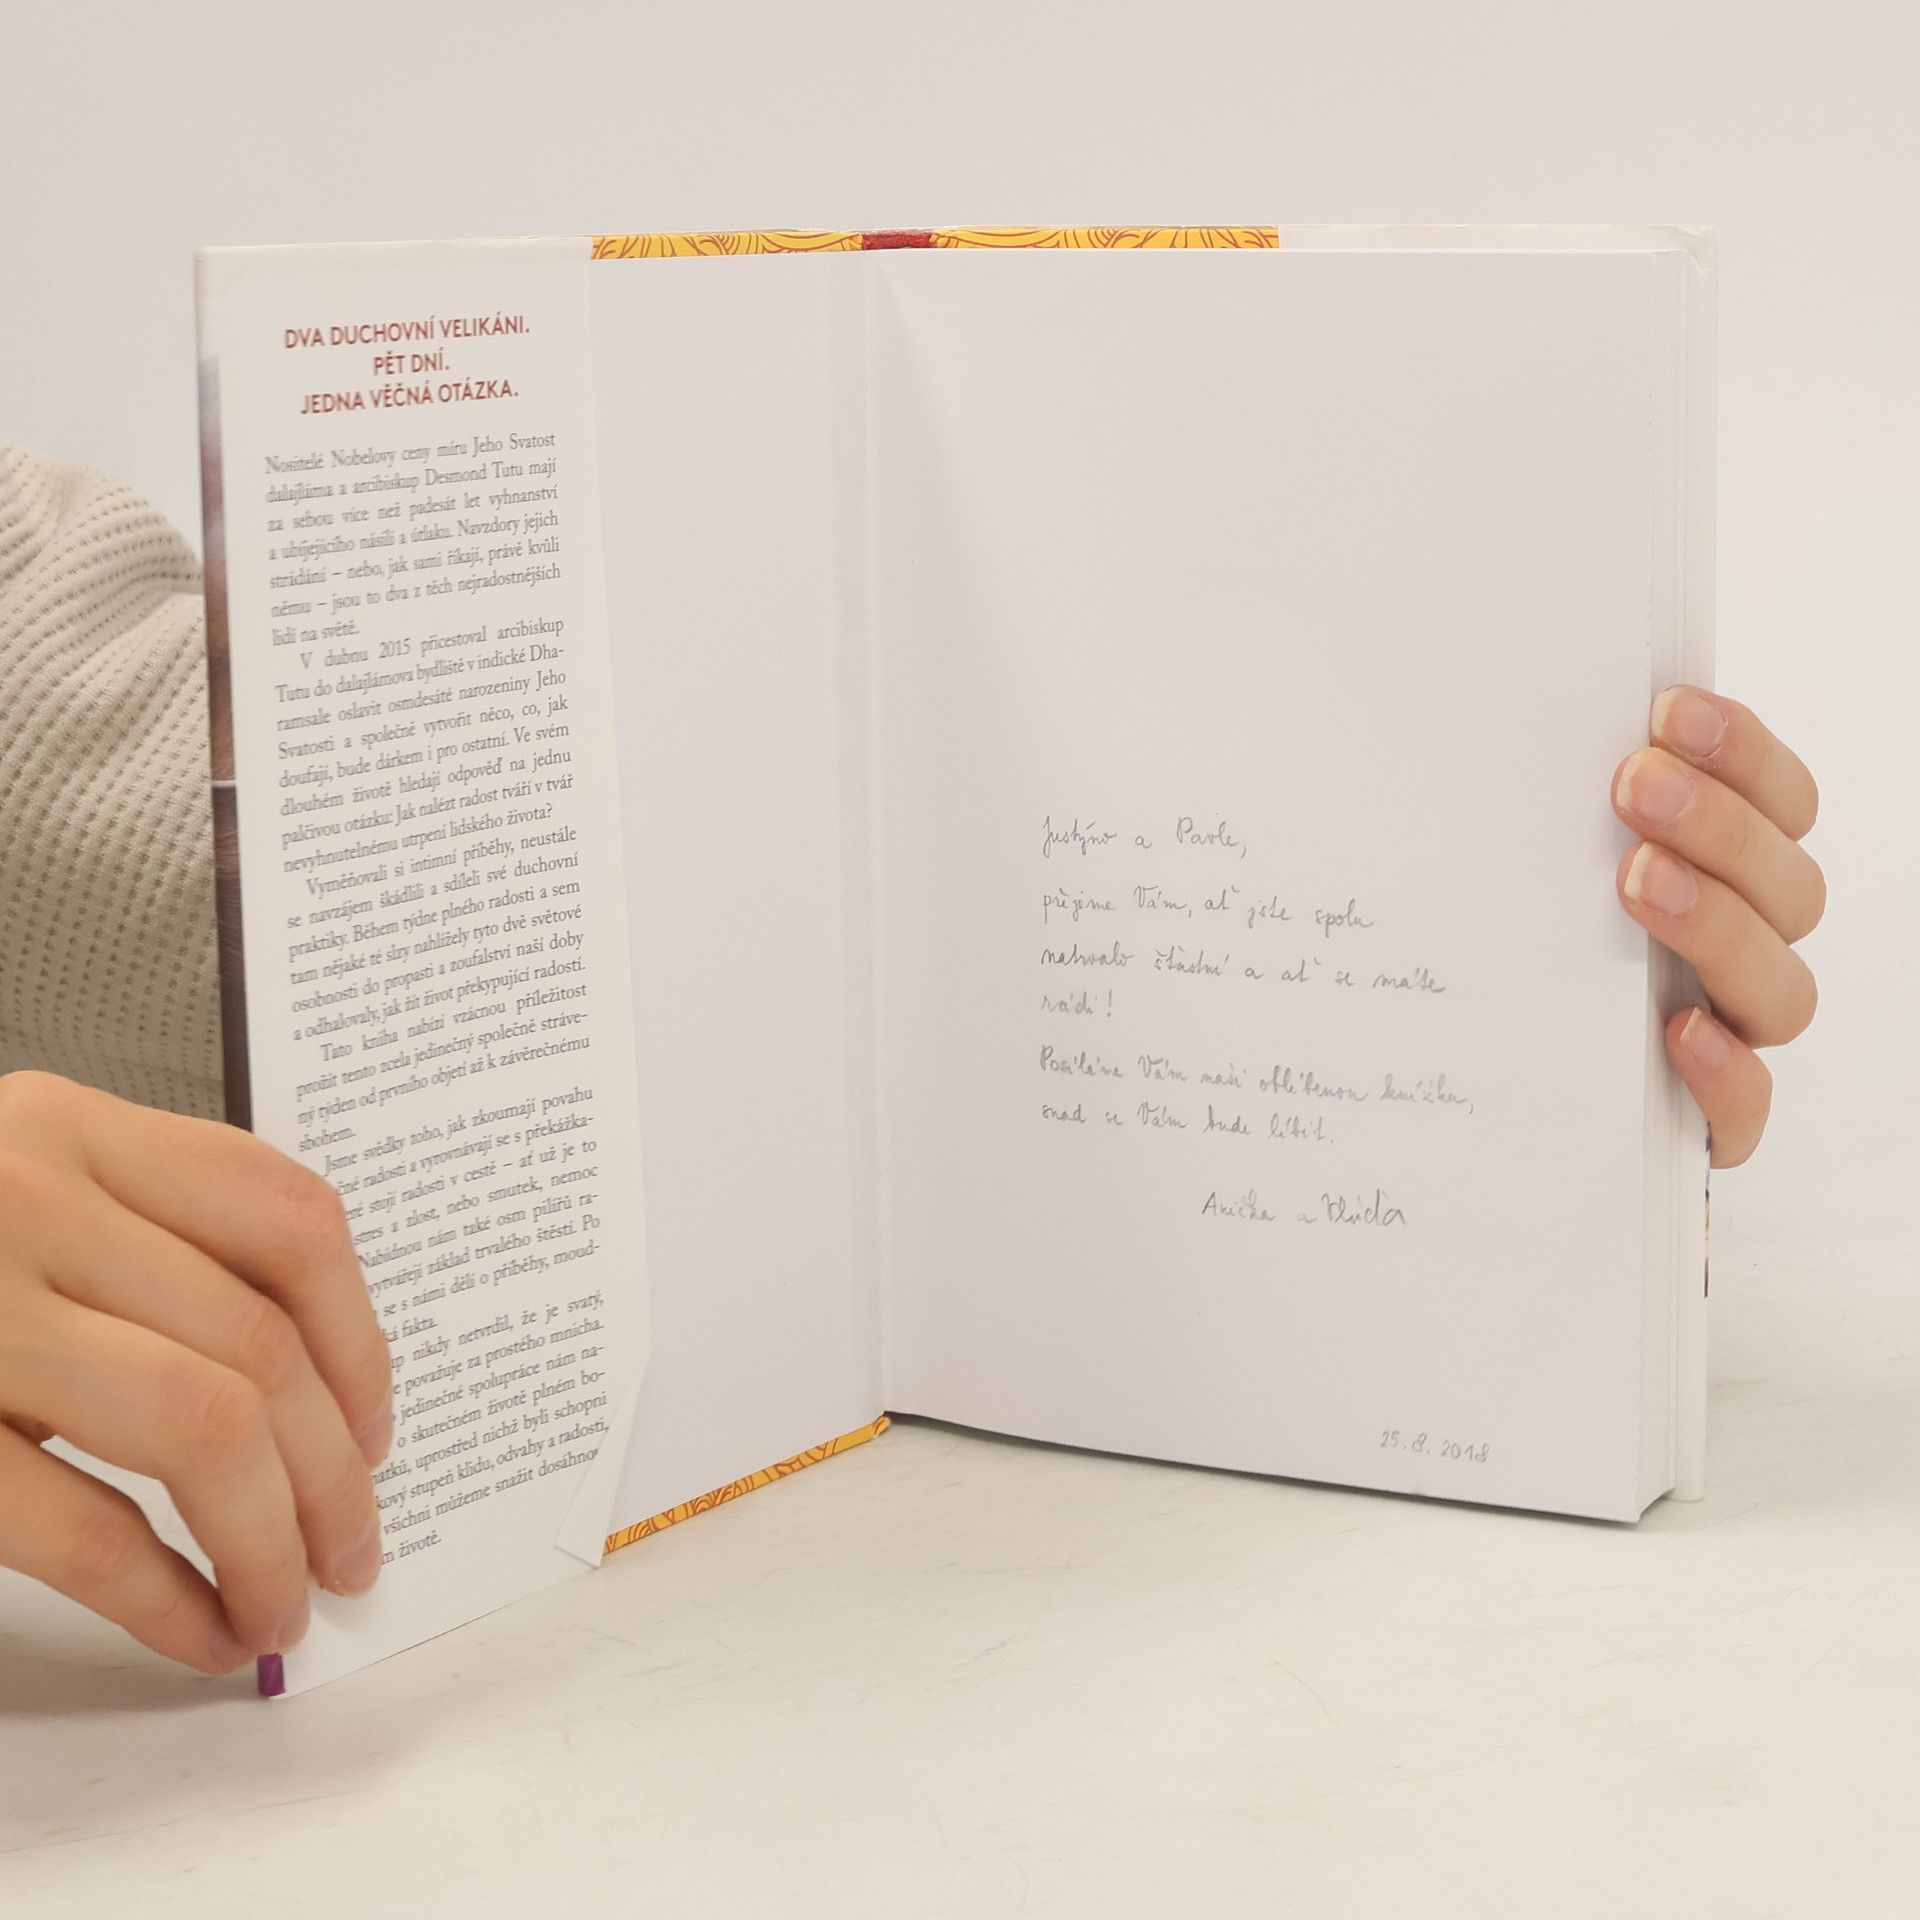 DVA DUCHOVNÍ VELIKÁNI.
PĚT DNÍ.
JEDNA VĚČNÁ OTÁZKA.
Nositelé Nobelovy ceny míru Jeho Svatost
dalajláma a arcibiskup Desmond Tutu mají
za sebou více než padesát let vyhnanství
a ubíjejícího násilí a útlaku. Navzdory jejich
strádání – nebo, jak sami říkají, právě kvůli
němu – jsou to dva z těch nejradostnějších
lidí na světě.
V dubnu 2015 přicestoval arcibiskup
Tutu do dalajlámova bydliště v indické Dha-
ramsale oslavit osmdesáté narozeniny Jeho
Svatosti a společně vytvořit něco, co, jak
doufají, bude dárkem i pro ostatní. Ve svém
dlouhém životě hledají odpověď na jednu
palčivou otázku: Jak nalézt radost tváří v tvář
nevyhnutelnému utrpení lidského života?
Vyměňovali si intimní příběhy, neustále
se navzájem škádlili a sdíleli své duchovní
praktiky. Během týdne plného radosti a sem
tam nějaké té slzy nahlížely tyto dvě světové
osobnosti do propasti a zoufalství naší doby
a odhalovaly, jak žít život překypující radostí.
Tato kniha nabízí vzácnou příležitost
prožít tento zcela jedinečný společně stráve-
ný týden od prvního objetí až k závěrečnému
sbohem.
Jsme svědky toho, jak zkoumají povahu
čné radosti a vyrovnávají se s překážka-
eré stojí radosti v cestě – ať už je to
stres a zlost, nebo smutek, nemoc
Nabídnou nám také osm pilířů ra-
vytvářejí základ trvalého štěstí. Po
se s námi dělí o příběhy, moud-
ká fakta.
up nikdy netvrdil, že je svatý,
e považuje za prostého mnicha.
jedinečné spolupráce nám na-
o skutečném životě plném bo-
matků, uprostřed nichž byli schopni
kový stupeň klidu, odvahy a radosti,
všichni můžeme snažit dosáhnou
m životě.
Justýno a Pavle,
přejeme Vám, ať jste spolu
natrvalo šťastní a ať se máte
rádi!
Posíláme Vám naši oblíbenou knížku,
snad se Vám bude líbit.
Anička a Vláďa
25. 8. 2018